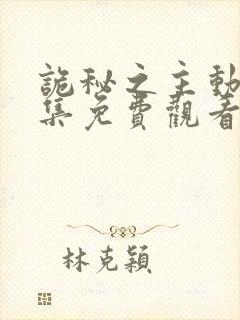 詭秘之主動
集免費觀看
林克穎